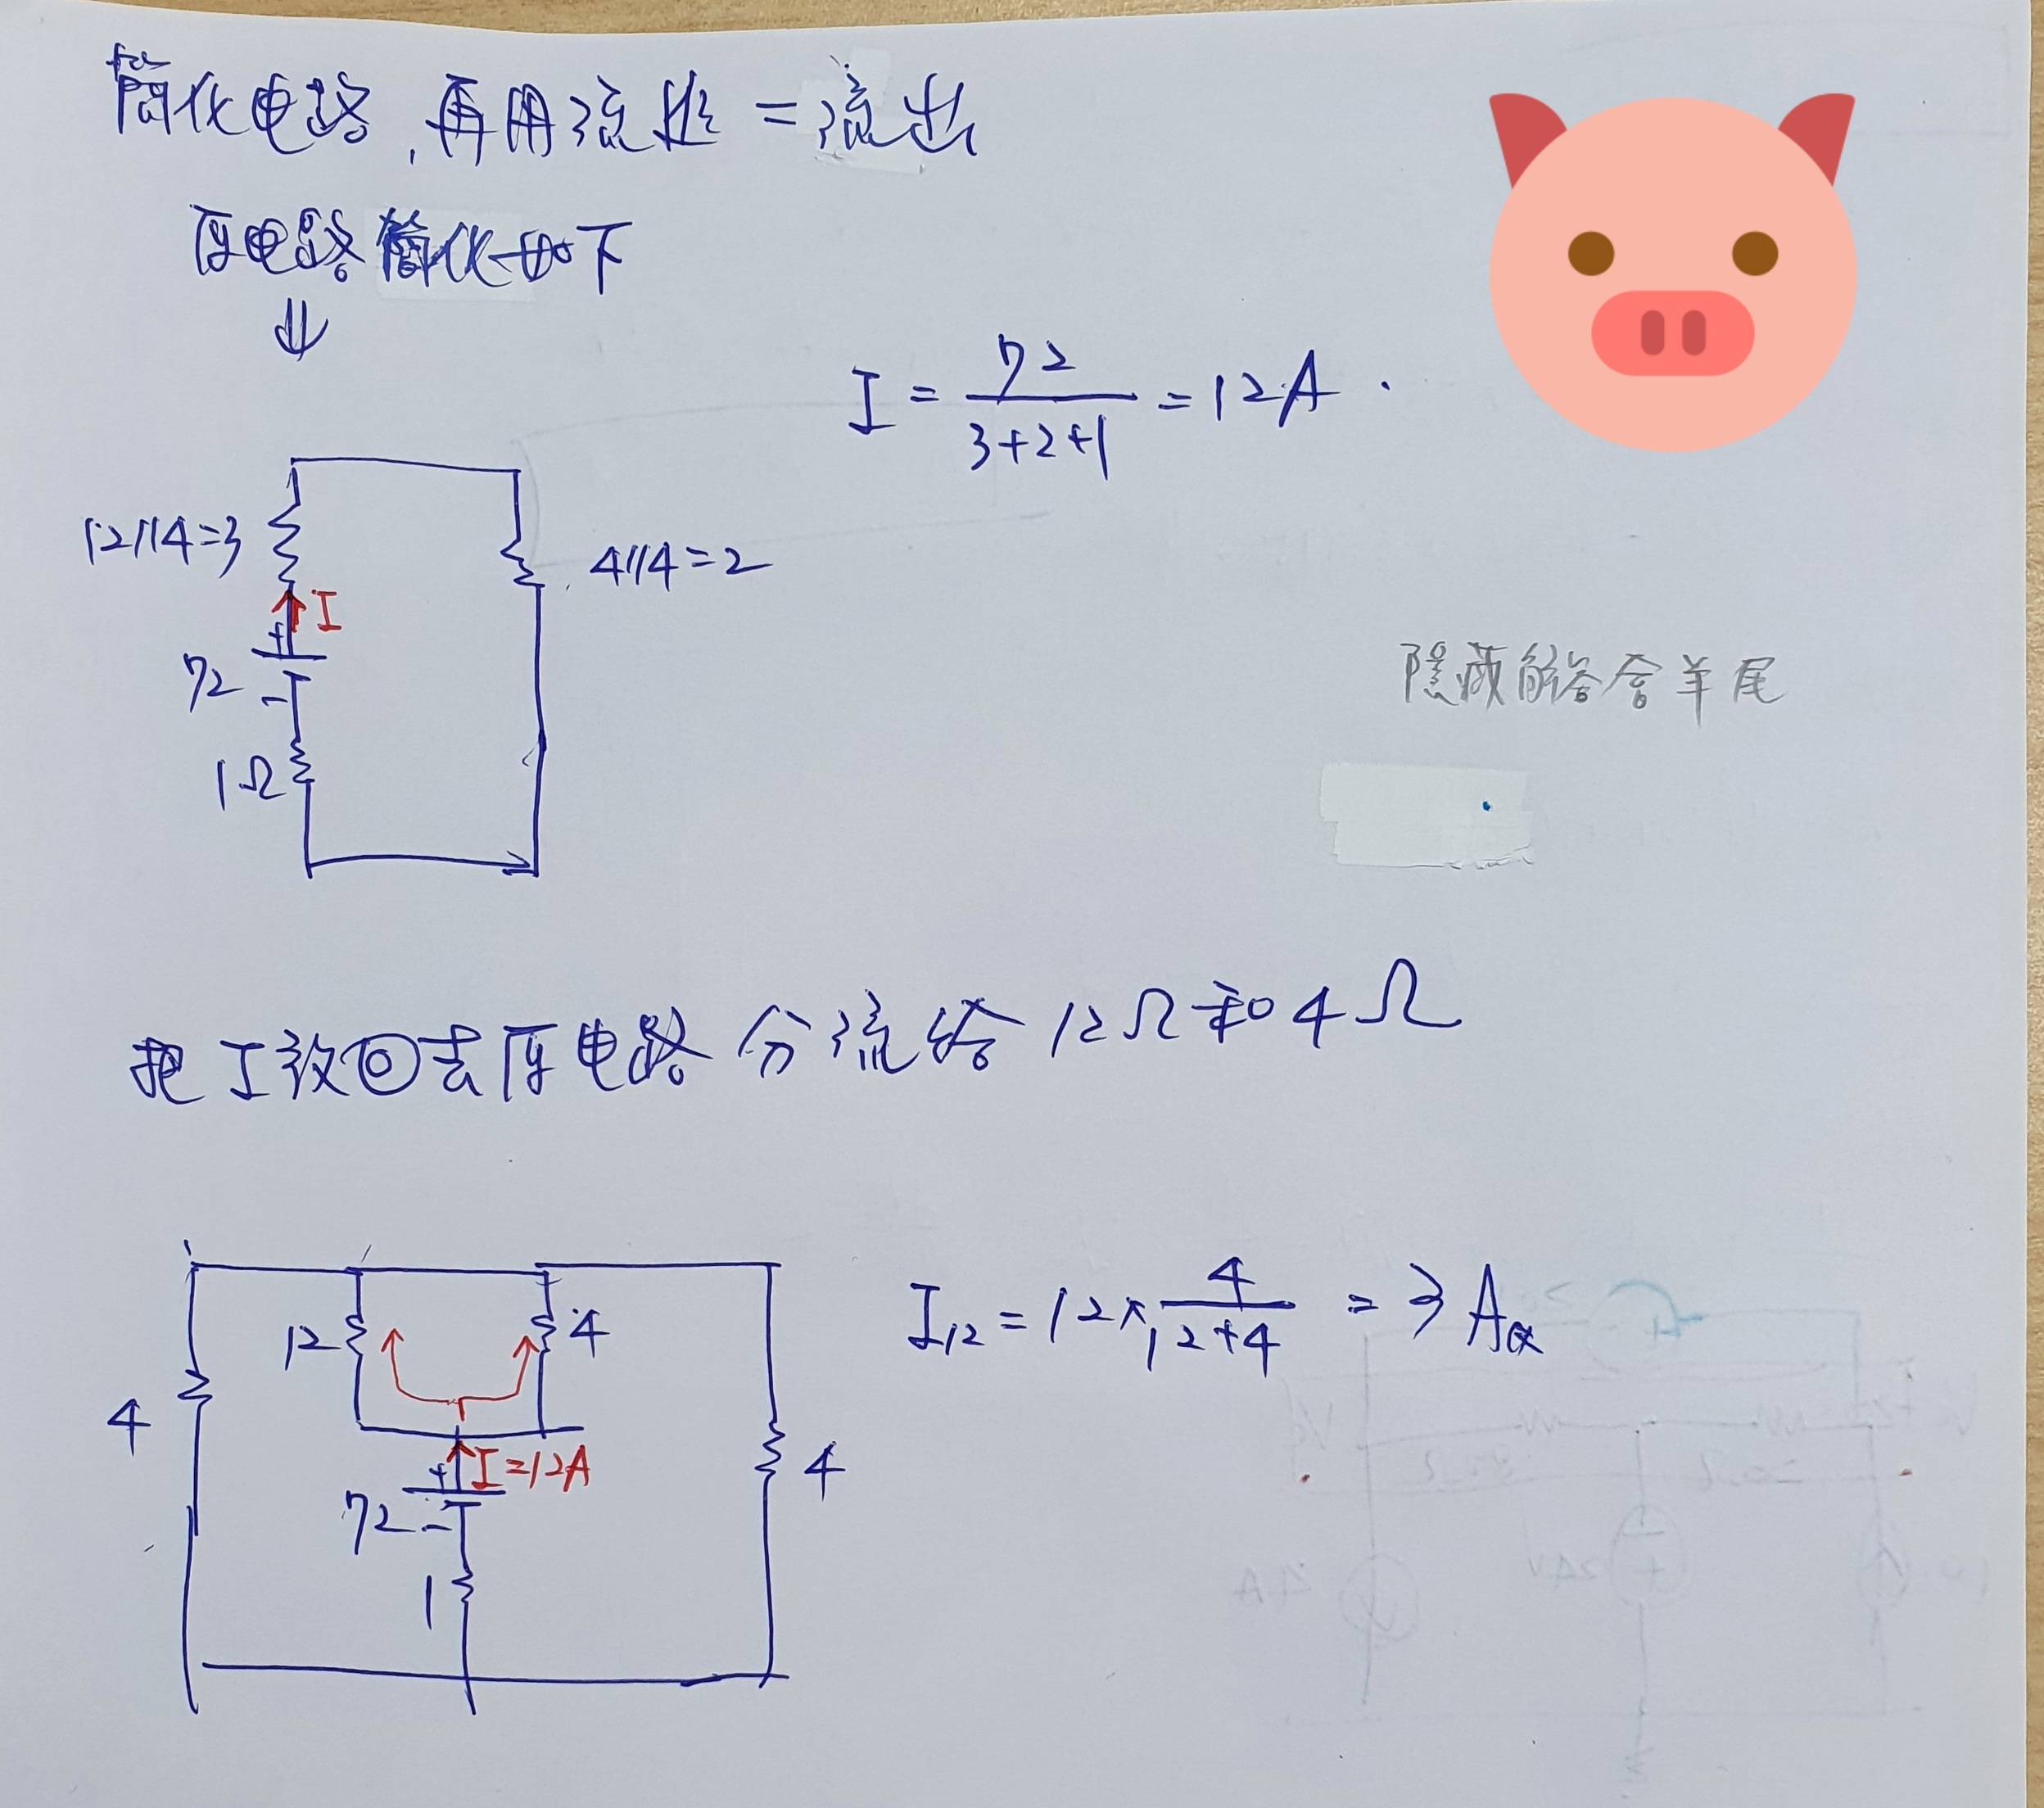 簡化电路,再用流进=流出
原电路簡化如下
⇓
I = 72/(3+2+1) = 12A.
12//4=3
I
4//4=2
+
72
-
1Ω
隱藏解答含羊尾
把I放回去原电路分流给12Ω和4Ω
12
4
I₁₂ = 12×4/(12+4) = 3A
4
+
I=12A
4
72
-
1